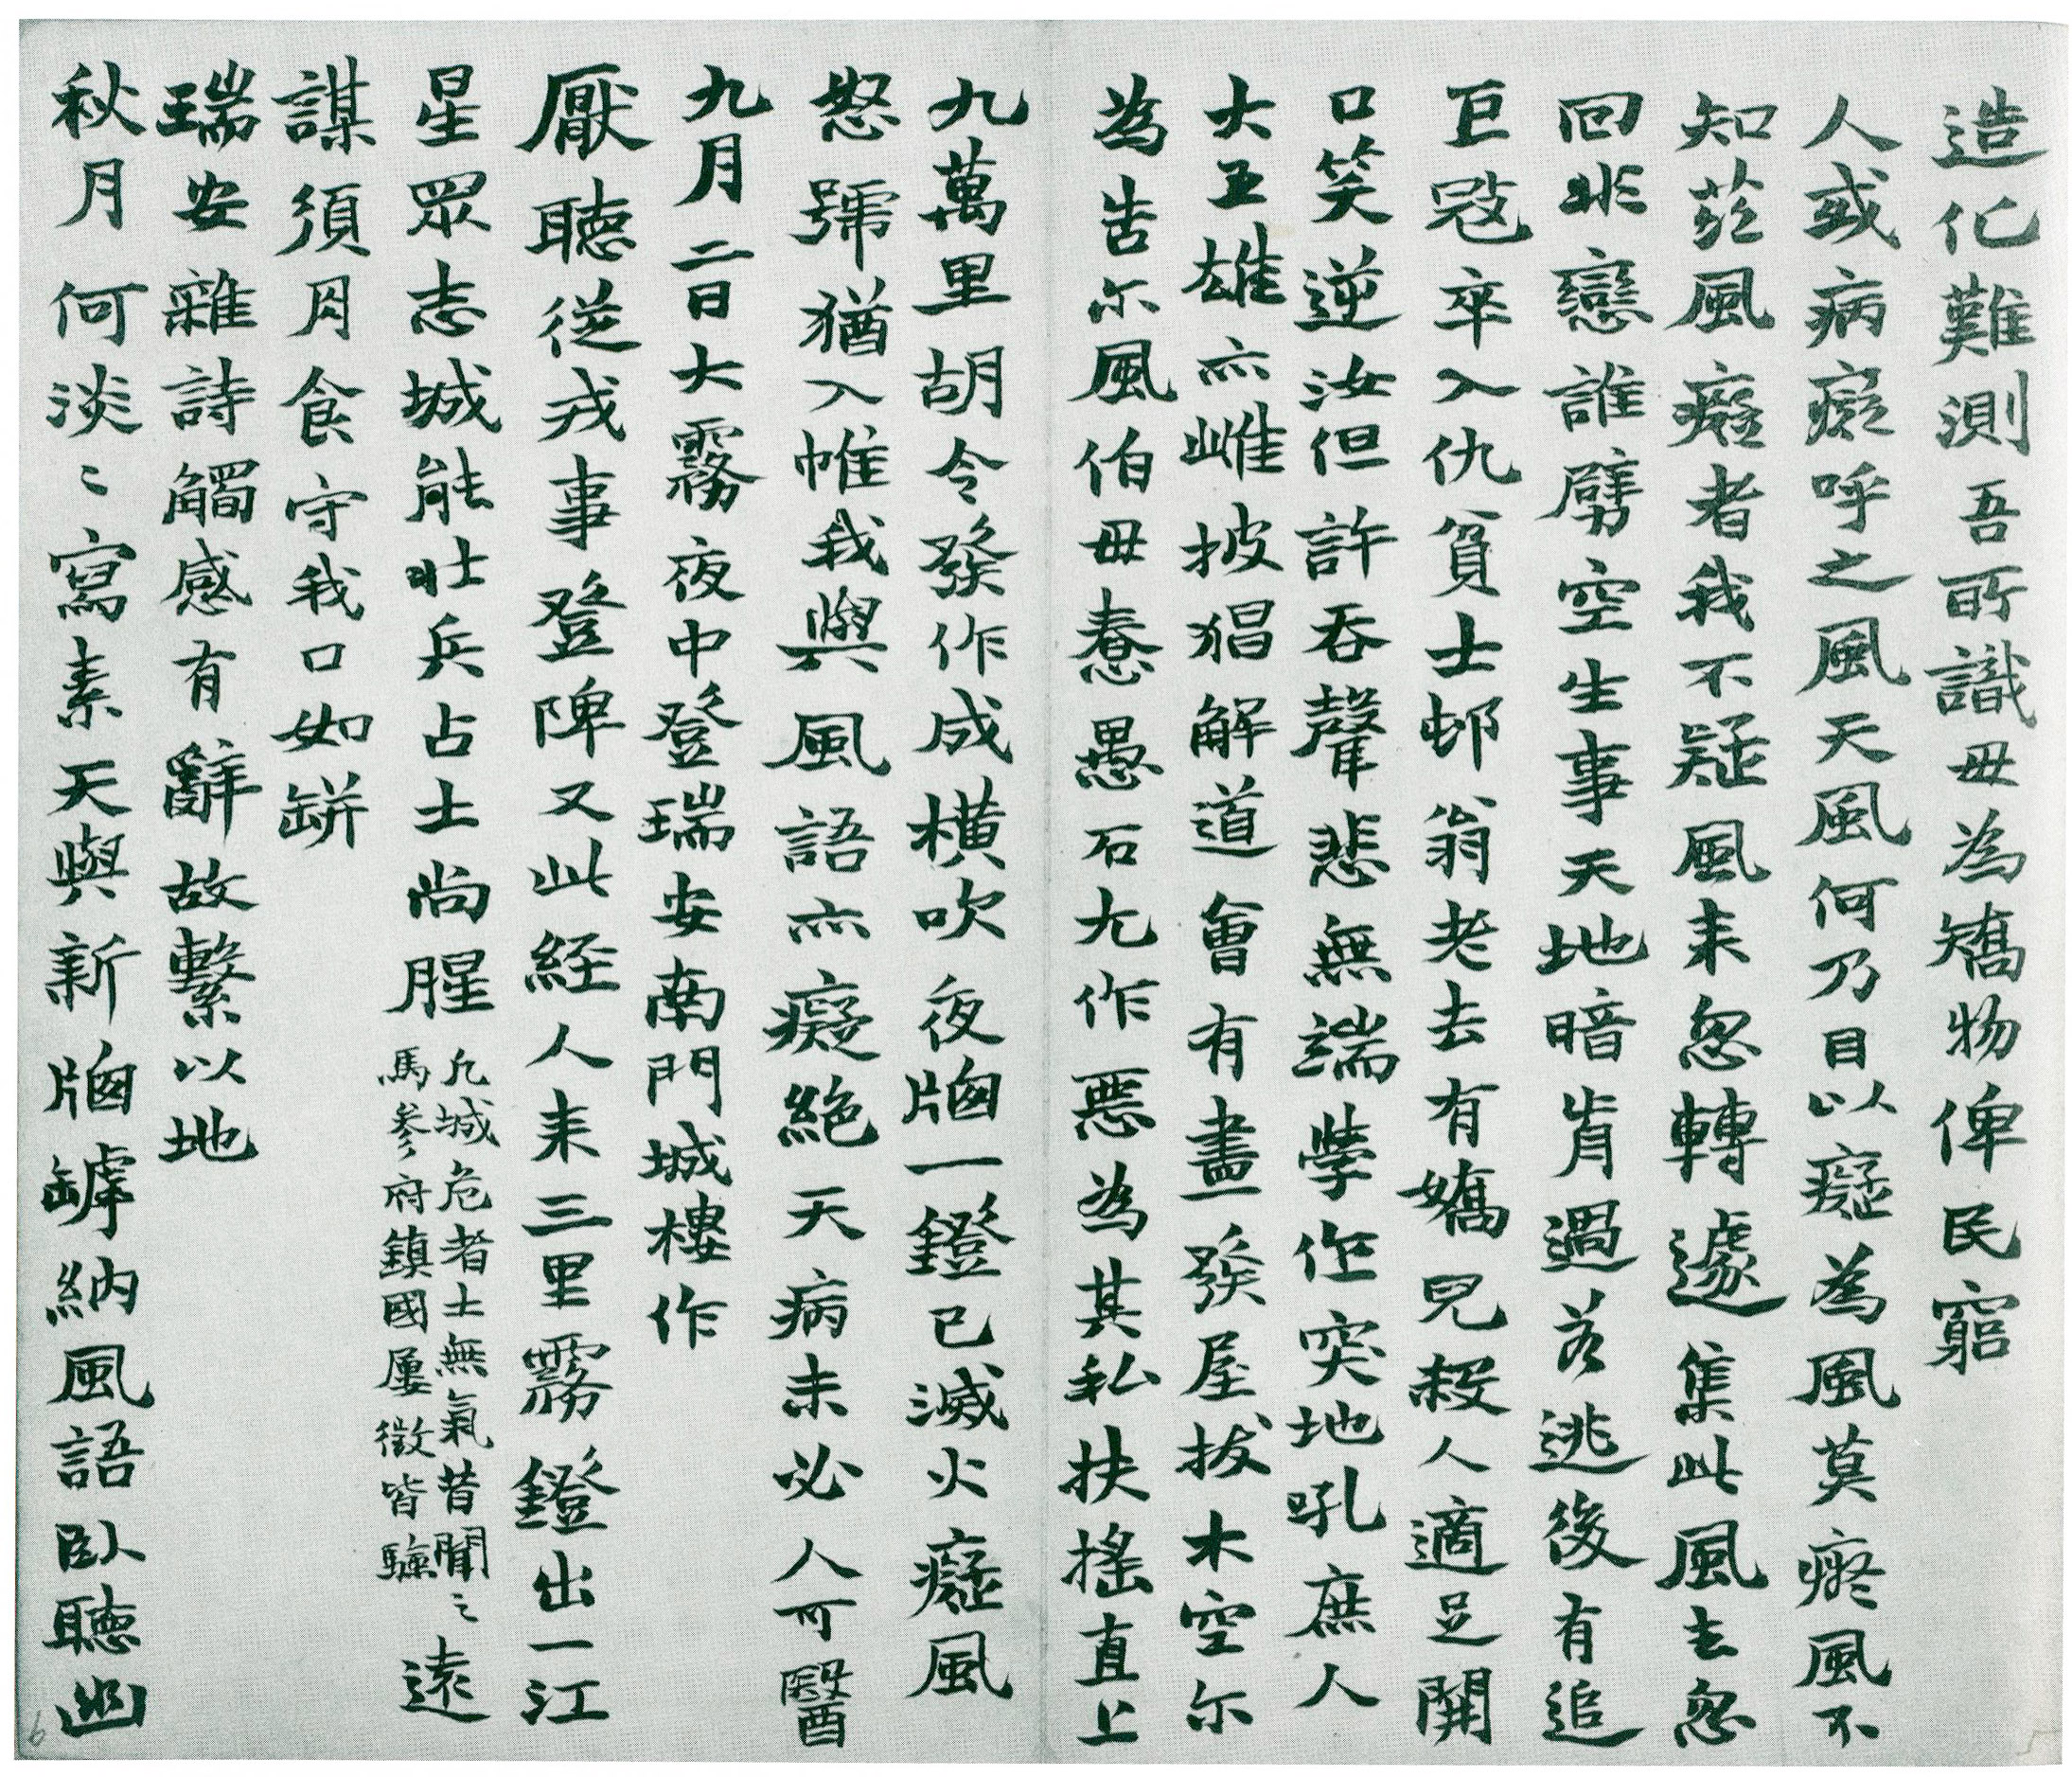 造化難測吾所識毋為矯物俾民窮
人或病癡呼之風天風何乃目以癡為風莫療風不
知茲風癡者我不疑風来忽轉遽集此風去忽
回非戀誰劈空生事天地暗肯過若逃後有追
巨寇卒入仇貧士邨翁老去有嬌兒殺人適足開
口笑逆汝但許吞聲悲無端學作突地吼庶人
大王雄亦雌披猖解道會有盡發屋拔木空尔
為告尔風伯毋惷愚石尤作惡為其私扶搖直上
九萬里胡令發作成橫吹夜牕一鐙已滅火癡風
怒號猶入帷我與風語亦癡絕天病未必人可醫
九月二日大霧夜中登瑞安南門城樓作
厭聽從戎事登陴又此經人来三里霧鐙出一江
星眾志城能壯兵占土尚腥九城危者土無氣昔聞之馬參府鎮國屢徵皆驗遠
謀須肉食守我口如缾
瑞安雜詩觸感有辭故繫以地
秋月何淡〻寫素天與新牕罅納風語臥聽幽